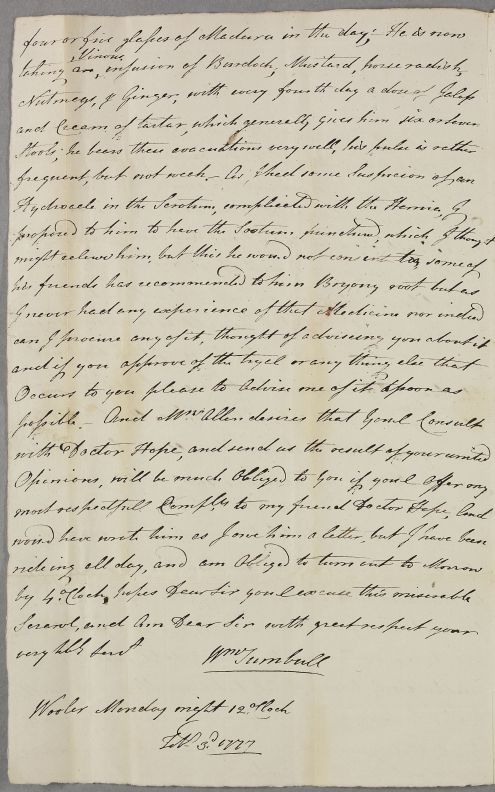 four or five glasses of Madeira in the day; He is now
Vinous
taking an infusion of Burdock, Mustard, horse radish,
Nutmegs, & Ginger, with every fourth day a dose of Jalap
and Cream of tartar, which generally gives him six or seven
Stools, he bears these evacuations very well, his pulse is rather
frequent, but not weak. – As I had some Suspicion of an
Hydrocele in the Scrotum, complicated with the Hernia, I
proposed to him to have the Scrotum, punctured, which I thought
might relieve him, but this he would not consent to, some of
his friends has recommended to him Bryony root but as
I never had any experience of that Medicine nor indeed
can I procure any of it, thought of adviseing you about it
and if you approve of the tryal or any thing else that
Occurs to you please to advise me of it as soon as
possible – And Mrs Allan desires that you'l Consult
with Doctor Hope, and send us the result of your united
Opinions, will be much Obliged to you if you'l offer my
most respectfull Complts to my friend Doctor Hope, And
would have wrote him as I owe him a letter, but I have been
rideing all day, and am Obliged to turn out to Morrow
by 4 oClock, hopes Dear Sir you'l excuse this miserable
Scrawl, and Am Dear Sir with great respect your
very hble Servt
Wm Turnbull
Wooler Monday night 12 oClock
Feb. 3d 1777